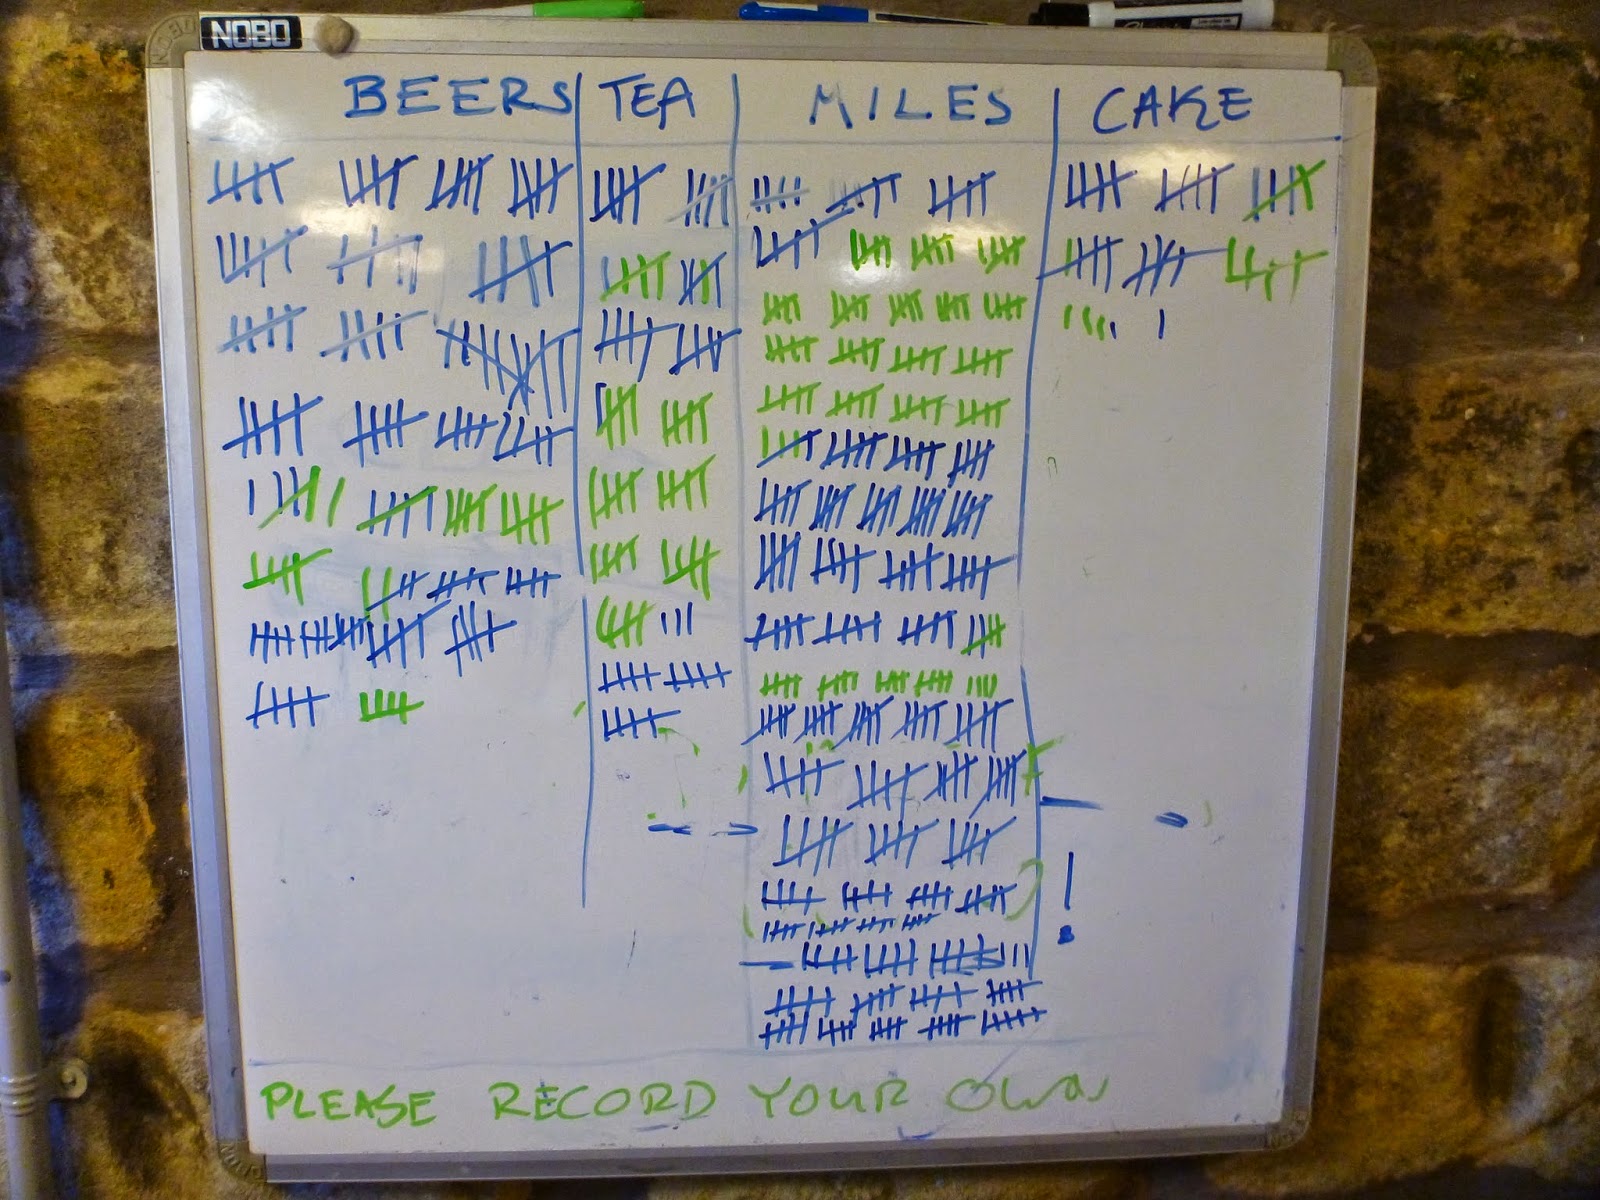 NOBO
BEERS TEA MILES CAKE
PLEASE RECORD YOUR OWN